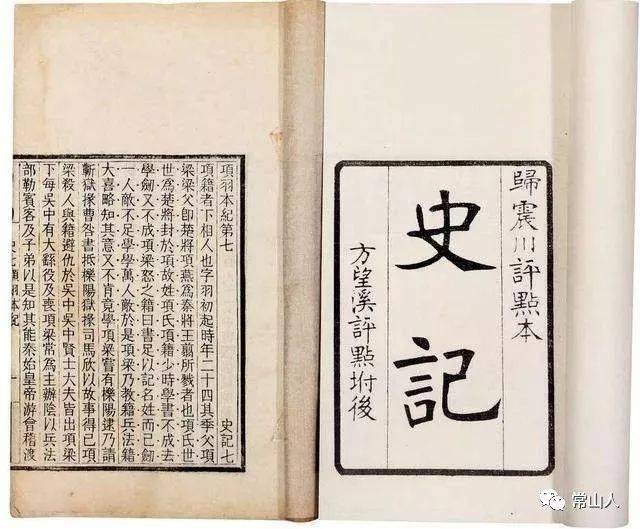 歸震川評點本
史記
方望溪評點坿後
項羽本紀第七 史記七
項籍者下相人也字羽初起時年二十四其季父項
梁梁父卽楚將項燕爲秦將王翦所戮者也項氏世
世爲楚將封於項故姓項氏項籍少時學書不成去
學劒又不成項梁怒之籍曰書足以記名姓而已劒
一人敵不足學學萬人敵於是項梁乃教籍兵法籍
大喜略知其意又不肯竟學項梁嘗有櫟陽逮乃請
蘄獄掾曹咎書抵櫟陽獄掾司馬欣以故事得已項
梁殺人與籍避仇於吳中吳中賢士大夫皆出項梁
下每吳中有大繇役及喪項梁常爲主辦陰以兵法
部勒賓客及子弟以是知其能秦始皇帝游會稽渡
項羽本紀
常山人